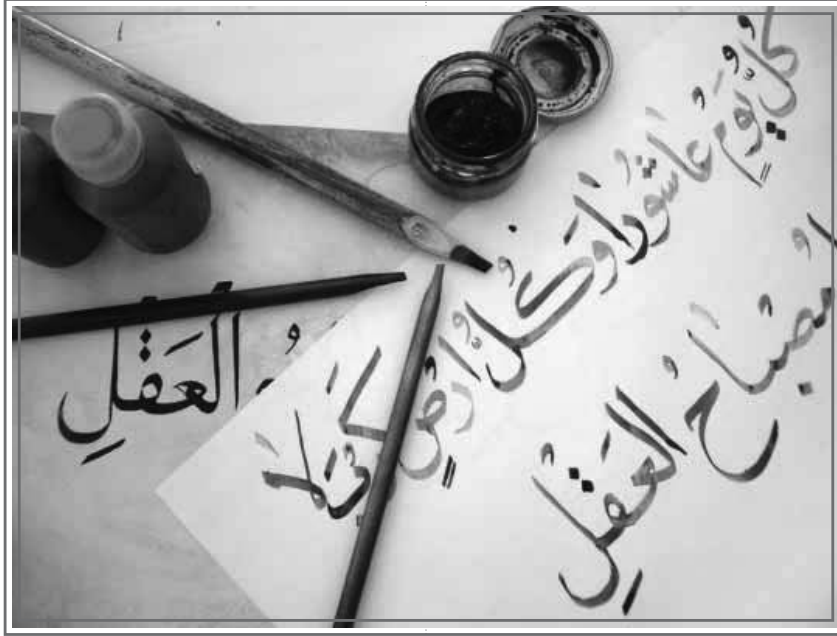 كُلُّ يَوْمٍ عَاشُورَا وَكُلُّ اَرْضٍ كَرْبَلَا
مُصْبَاحُ العَقْلِ
العَقْلِ